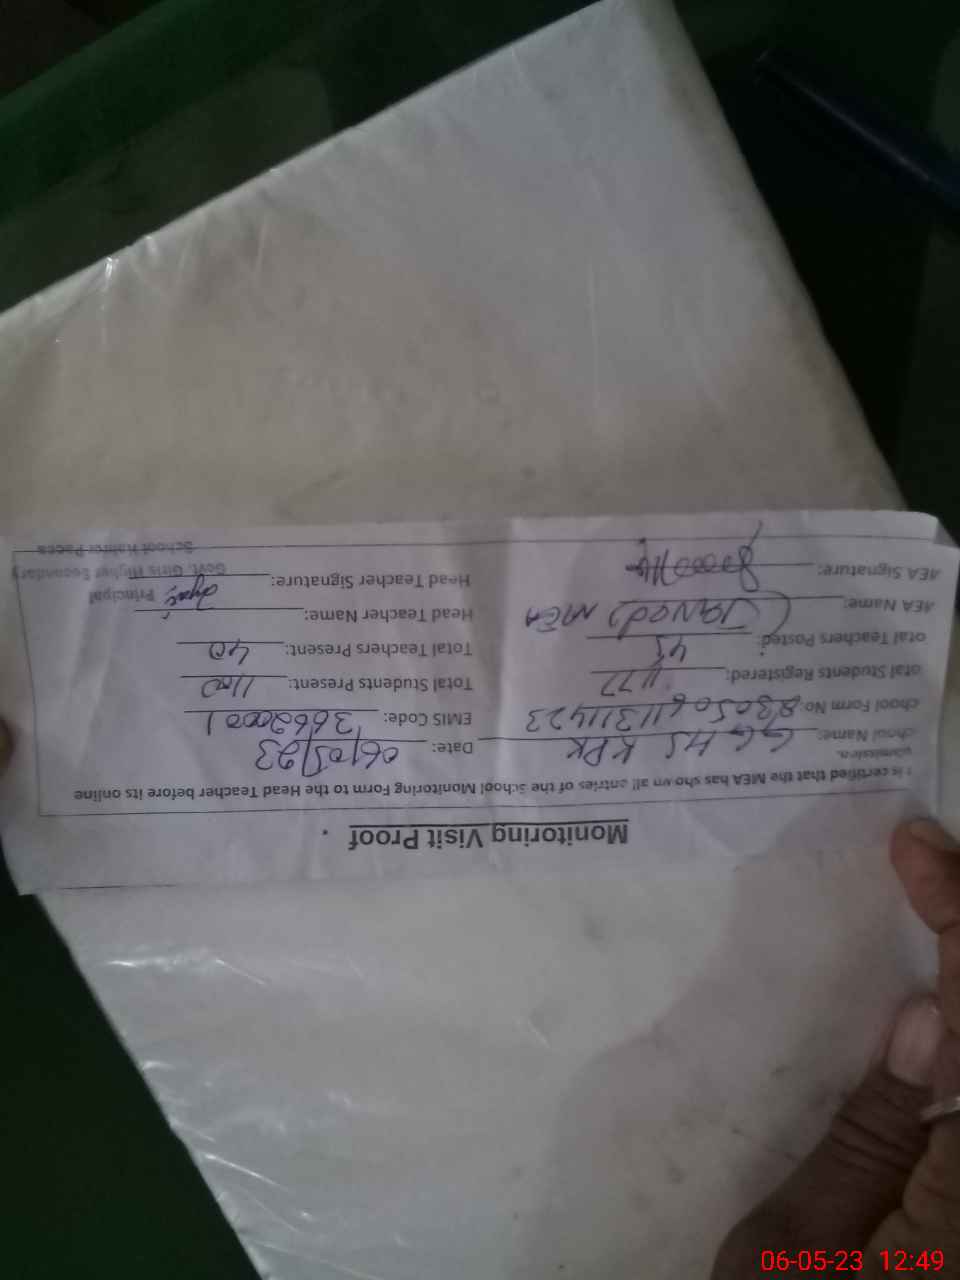 Monitoring Visit Proof .
t is certified that the MEA has shown all entries of the School Monitoring Form to the Head Teacher before its online
ubmission.
chool Name: GGHS KPK Date: 06/05/23
chool Form No: 2305061131423 EMIS Code: 36620001
otal Students Registered: 1177 Total Students Present: 1100
otal Teachers Posted: 45 Total Teachers Present: 40
MEA Name: Javed MEA Head Teacher Name:
MEA Signature: Head Teacher Signature:
Principal
Govt. Girls Higher Secondary
School Kahror Pacca
06-05-23 12:49